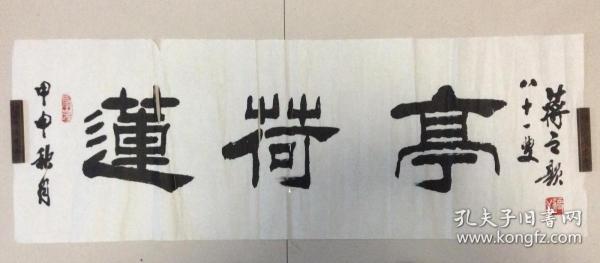 甲申秋月
蓮荷亭
八十一叟
蔣之歌
孔夫子旧书网
www.kongfz.com